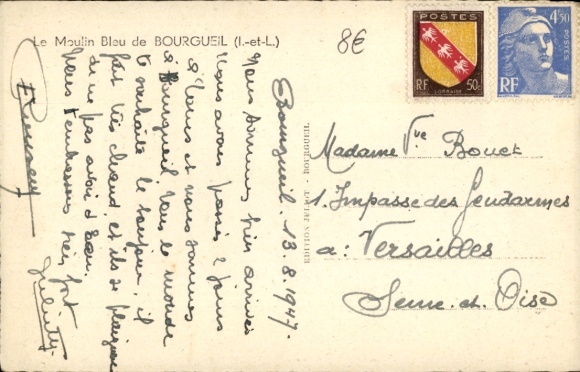 Le Moulin Bleu de BOURGUEIL (I.-et-L.)
8€
POSTES
RF 50c
LORRAINE
4F50
POSTES
RF
Bourgueil. 13.8.1947.
Nous sommes bien arrivés
Nous avons passé 2 jours
à Tours et nous sommes
à Bourgueil. Tous le monde
te souhaite le bonjour, il
fait très chaud, et ils se plaignent
de ne pas avoir d'eau.
Nous t'embrassons bien fort
EDITION JEHLOT - BOURGUEIL
Madame Vve Bouet
1. Impasse des Gendarmes
a: Versailles
Seine-et-Oise